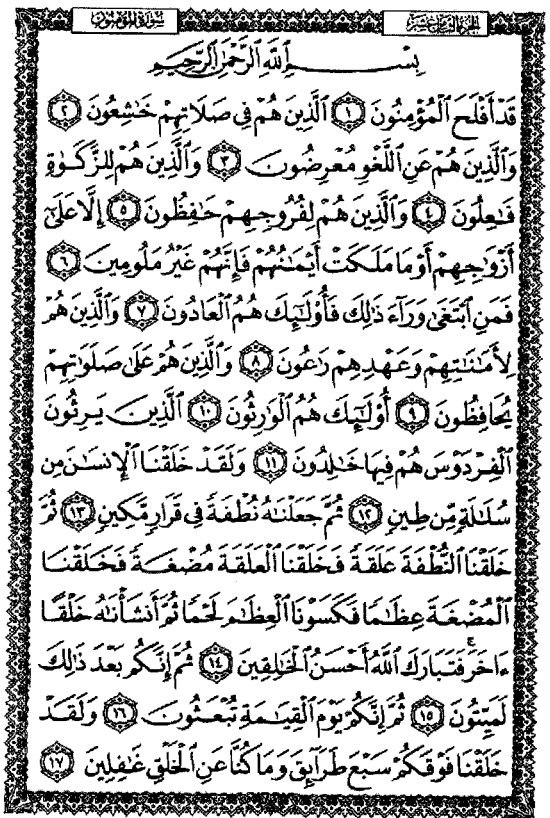 سورة المؤمنون
الجزء الثامن عشر
بِسْمِ ٱللَّهِ ٱلرَّحْمَٰنِ ٱلرَّحِيمِ
قَدْ أَفْلَحَ ٱلْمُؤْمِنُونَ ١ ٱلَّذِينَ هُمْ فِى صَلَاتِهِمْ خَٰشِعُونَ ٢
وَٱلَّذِينَ هُمْ عَنِ ٱللَّغْوِ مُعْرِضُونَ ٣ وَٱلَّذِينَ هُمْ لِلزَّكَوٰةِ
فَٰعِلُونَ ٤ وَٱلَّذِينَ هُمْ لِفُرُوجِهِمْ حَٰفِظُونَ ٥ إِلَّا عَلَىٰٓ
أَزْوَٰجِهِمْ أَوْ مَا مَلَكَتْ أَيْمَٰنُهُمْ فَإِنَّهُمْ غَيْرُ مَلُومِينَ ٦
فَمَنِ ٱبْتَغَىٰ وَرَآءَ ذَٰلِكَ فَأُو۟لَٰٓئِكَ هُمُ ٱلْعَادُونَ ٧ وَٱلَّذِينَ هُمْ
لِأَمَٰنَٰتِهِمْ وَعَهْدِهِمْ رَٰعُونَ ٨ وَٱلَّذِينَ هُمْ عَلَىٰ صَلَوَٰتِهِمْ
يُحَافِظُونَ ٩ أُو۟لَٰٓئِكَ هُمُ ٱلْوَٰرِثُونَ ١٠ ٱلَّذِينَ يَرِثُونَ
ٱلْفِرْدَوْسَ هُمْ فِيهَا خَٰلِدُونَ ١١ وَلَقَدْ خَلَقْنَا ٱلْإِنسَٰنَ مِن
سُلَٰلَةٍ مِّن طِينٍ ١٢ ثُمَّ جَعَلْنَٰهُ نُطْفَةً فِى قَرَارٍ مَّكِينٍ ١٣ ثُمَّ
خَلَقْنَا ٱلنُّطْفَةَ عَلَقَةً فَخَلَقْنَا ٱلْعَلَقَةَ مُضْغَةً فَخَلَقْنَا
ٱلْمُضْغَةَ عِظَٰمًا فَكَسَوْنَا ٱلْعِظَٰمَ لَحْمًا ثُمَّ أَنشَأْنَٰهُ خَلْقًا
ءَاخَرَ فَتَبَارَكَ ٱللَّهُ أَحْسَنُ ٱلْخَٰلِقِينَ ١٤ ثُمَّ إِنَّكُم بَعْدَ ذَٰلِكَ
لَمَيِّتُونَ ١٥ ثُمَّ إِنَّكُمْ يَوْمَ ٱلْقِيَٰمَةِ تُبْعَثُونَ ١٦ وَلَقَدْ
خَلَقْنَا فَوْقَكُمْ سَبْعَ طَرَآئِقَ وَمَا كُنَّا عَنِ ٱلْخَلْقِ غَٰفِلِينَ ١٧